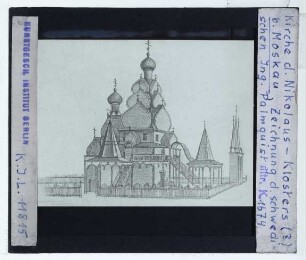 KUNSTGESCH. INSTITUT BERLIN
K.I.L. 11815
Kirche d. Nikolaus-Klosters (?)
b. Moskau Zeichnung d. schwedi-
schen Ing. Palmquist
1674